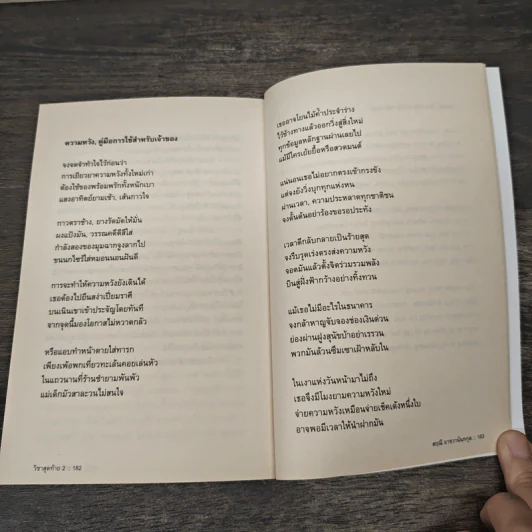 ความหวัง, คู่มือการใช้สำหรับเจ้าของ
จงจดจำทำใจไว้ก่อนว่า
การเยียวยาความหวังทั้งใหม่เก่า
ต้องใช้ของพร้อมพรักทั้งหนักเบา
แสงอาทิตย์ยามเช้า, เส้นกาวใจ
กาวตราช้าง, ยางรัดมัดให้มั่น
ผงแป้งมัน, วรรณคดีดีสีใส
กำลังสองของมุมฉากจูงลากไป
ขนนกไซร้ใส่หมอนนอนฝันดี
การจะทำให้ความหวังยังเดินได้
เธอต้องไปยืนสง่าเปี่ยมราศี
บนเนินเขาเข้าประจัญโดยทันที
จากจุดนี้มองโอกาสไม่หวาดกลัว
หรือแอบทำหน้าตายใส่ทารก
เพียงเพื่อพกเที่ยวทะเล้นคอยเล่นหัว
ในแถวนานที่ร้านชำยามพันพัว
แม่เด็กมัวสาละวนไม่สนใจ
วิชาสุดท้าย 2 :: 182
เธออาจโยนไม้ค้ำประจำร่าง
ไว้ข้างทางแล้วออกวิ่งสู่สิ่งใหม่
ทุกข้อมูลหลักฐานผ่านเลยไป
แม้มีใครเย้ยยื้อหรือสวดมนต์
แน่นอนเธอไม่อยากตรงเข้ากรงขัง
แต่จงยังวิ่งบุกทุกแห่งหน
ผ่านเวลา, ความประหลาดทุกชาติชน
จงดั้นด้นอย่าร้องขอรอประทัง
เวลาดึกลับกลายเป็นร้ายสุด
จงรีบรุดเร่งตรงส่งความหวัง
จอดมันแล้วตั้งจิตร่วมรวมพลัง
บินสู่ฝั่งฟ้ากว้างอย่างทิ้งทวน
แม้เธอไม่มีอะไรในธนาคาร
จงกล้าหาญจับจองช่องเงินด่วน
ย่องผ่านฝูงสุนัขบ้าอย่าเรรวน
พวกมันล้วนซึมเซาเฝ้าหลับใน
ในเงาแห่งวันหน้ามาไม่ถึง
เธอจึงมีโมงยามความหวังใหม่
จ่ายความหวังเหมือนจ่ายเช็คเด้งหนึ่งใบ
อาจพอมีเวลาให้นำฝากมัน
สฤณี อาชวานันทกุล :: 183